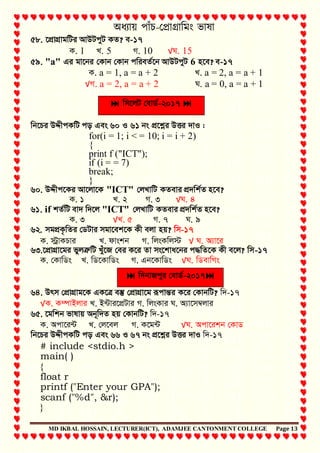 অধ্যায় পাঁচ-প্রোগ্রামিং ভাষা
৫৮. প্রোগ্রামটির আউটপুট কত? ব-১৭
ক. 1 খ. 5 গ. 10 √ঘ. 15
৫৯. "a" এর মানের কোন কোন পরিবর্তনে আউটপুট 6 হবে? ব-১৭
ক. a = 1, a = a + 2 খ. a = 2, a = a + 1
√গ. a = 2, a = a + 2 ঘ. a = 0, a = a + 1
⏭ সিলেট বোর্ড-২০১৭ ⏮
নিচের উদ্দীপকটি পড় এবং ৬০ ও ৬১ নং প্রশ্নের উত্তর দাও :
for(i = 1; i < = 10; i = i + 2)
{
print f ("ICT");
if (i = = 7)
break;
}
৬০. উদ্দীপকের আলোকে "ICT" লেখাটি কতবার প্রদর্শিত হবে?
ক. ১ খ. ২ গ. ৩ √ঘ. ৪
৬১. if শর্তটি বাদ দিলে "ICT" লেখাটি কতবার প্রদর্শিত হবে?
ক. ৩ √খ. ৫ গ. ৭ ঘ. ৯
৬২. সমপ্রকৃতির ডেটার সমাবেশকে কী বলা হয়? সি-১৭
ক. স্ট্রাকচার খ. ফাংশন গ. লিংকলিস্ট √ ঘ. অ্যারে
৬৩.প্রোগ্রামের ভুলত্রুটি খুঁজে বের করে তা সংশোধনের পদ্ধতিকে কী বলে? সি-১৭
ক. কোডিং খ. ডিকোডিং গ. এনকোডিং √ঘ. ডিবাগিং
⏭ দিনাজপুর বোর্ড-২০১৭⏮
৬৪. উৎস প্রোগ্রামকে একত্রে বস্তু প্রোগ্রামে রূপান্তর করে কোনটি? দি-১৭
√ক. কম্পাইলার খ. ইন্টারপ্রেটার গ. লিংকার ঘ. অ্যাসেম্বলার
৬৫. মেশিন ভাষায় অনূদিত হয় কোনটি? দি-১৭
ক. অপারেন্ট খ. লেবেল গ. কমেন্ট √ঘ. অপারেশন কোড
নিচের উদ্দীপকটি পড় এবং ৬৬ ও ৬৭ নং প্রশ্নের উত্তর দাও দি-১৭
# include <stdio.h >
main( )
{
float r
printf ("Enter your GPA");
scanf ("%d", &r);
}
MD IKBAL HOSSAIN, LECTURER(ICT), ADAMJEE CANTONMENT COLLEGE Page 13